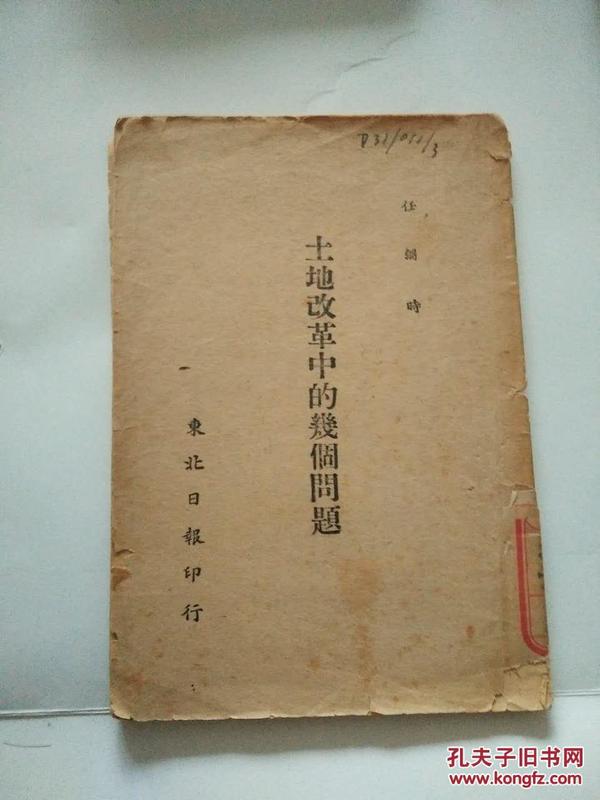 任弼時
土地改革中的幾個問題
東北日報印行
孔夫子旧书网
www.kongfz.com